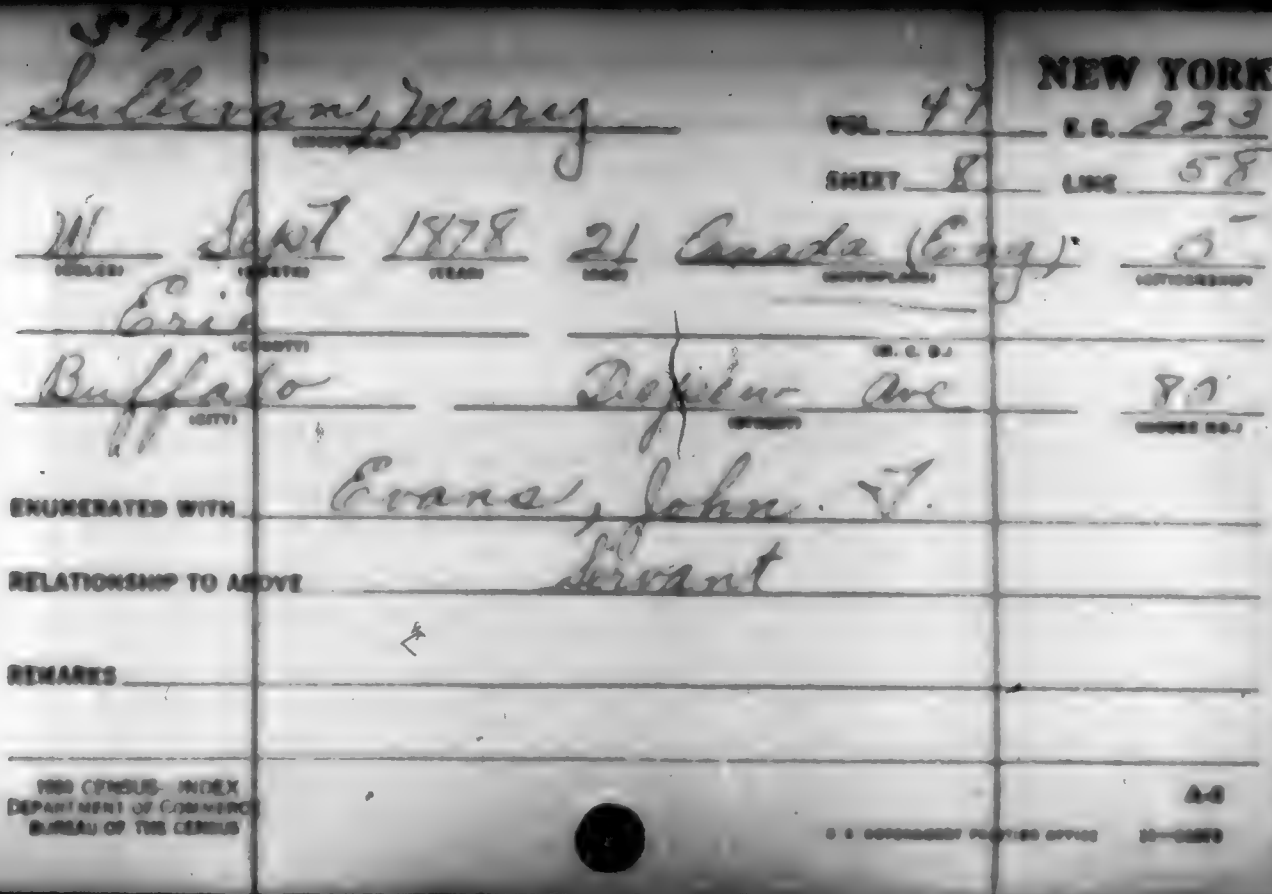 S 415
NEW YORK
Sullivan, Mary
VOL. 47 E.D. 223
SHEET 8 LINE 58
W Sept 1878 21 Canada (Eng)
(COLOR) (MONTH) (YEAR) (AGE) (BIRTHPLACE) (CITIZENSHIP)
Erie
(COUNTY) (M. C. D.)
Buffalo Ave
(CITY) (STREET) (HOUSE NO.)
ENUMERATED WITH Evans, John
RELATIONSHIP TO ABOVE Servant
REMARKS
1900 CENSUS- INDEX
DEPARTMENT OF COMMERCE
BUREAU OF THE CENSUS
U. S. GOVERNMENT PRINTING OFFICE